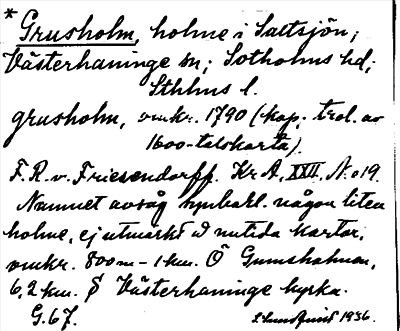 * Grusholm, holme i Saltsjön;
Västerhaninge sn; Sotholms hd;
Sthlms l.
grusholm, omkr. 1790 (kop. trol. av
1600-talskarta).
F. R. v. Friesendorff. Kr A, XXII, N:o 19.
Namnet avsåg synbarl. någon liten
holme, ej utmärkt å nutida kartor,
omkr. 800 m – 1 km. Ö Gumsholmen,
6,2 km. S Västerhaninge kyrka.
G. 67. 1936.